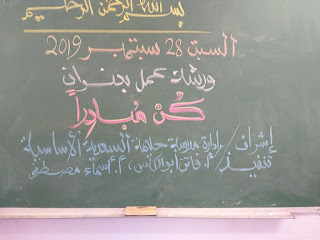 بسم الله الرحمن الرحيم
السبت 28 سبتمبر 2019
ورشة عمل بعنوان
كن مبادراً
إشراف / إدارة مدرسة حلاهة السعدية الأساسية
تنفيذ / أ. فاتن أبو الكاس، أ. أسماء مصطفى